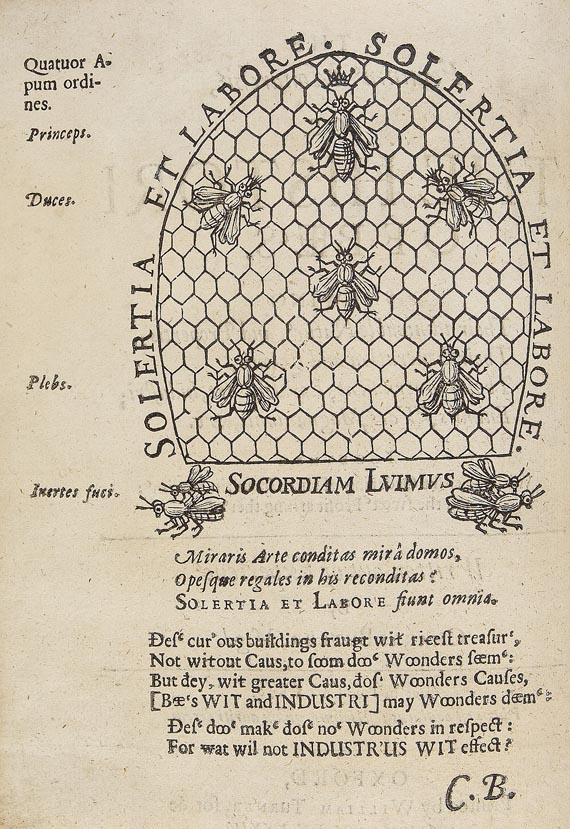 Quatuor A-
pum ordi-
nes.
Princeps.
Duces.
Plebs.
Inertes fuci.
SOLERTIA ET LABORE. SOLERTIA ET LABORE.
SOCORDIAM LVIMVS
Miraris Arte conditas mirâ domos,
Opeſque regales in his reconditas?
SOLERTIA ET LABORE fiunt omnia.
Ðeſ‘ cur’ous buildings fraugt wiŧ riceſt treaſur‘,
Not witout Caus, to ſoom doo‘ Woonders ſæm‘:
But ðey, wiŧ greater Caus, ðoſ‘ Woonders Cauſes,
[Bæ‘s WIT and INDUSTRI] may Wonders dæm‘:
Ðeſ‘ doo‘ mak‘ ðoſ‘ no‘ Wonders in reſpect:
For wat wil not INDUSTR’US WIT effect?
C. B.